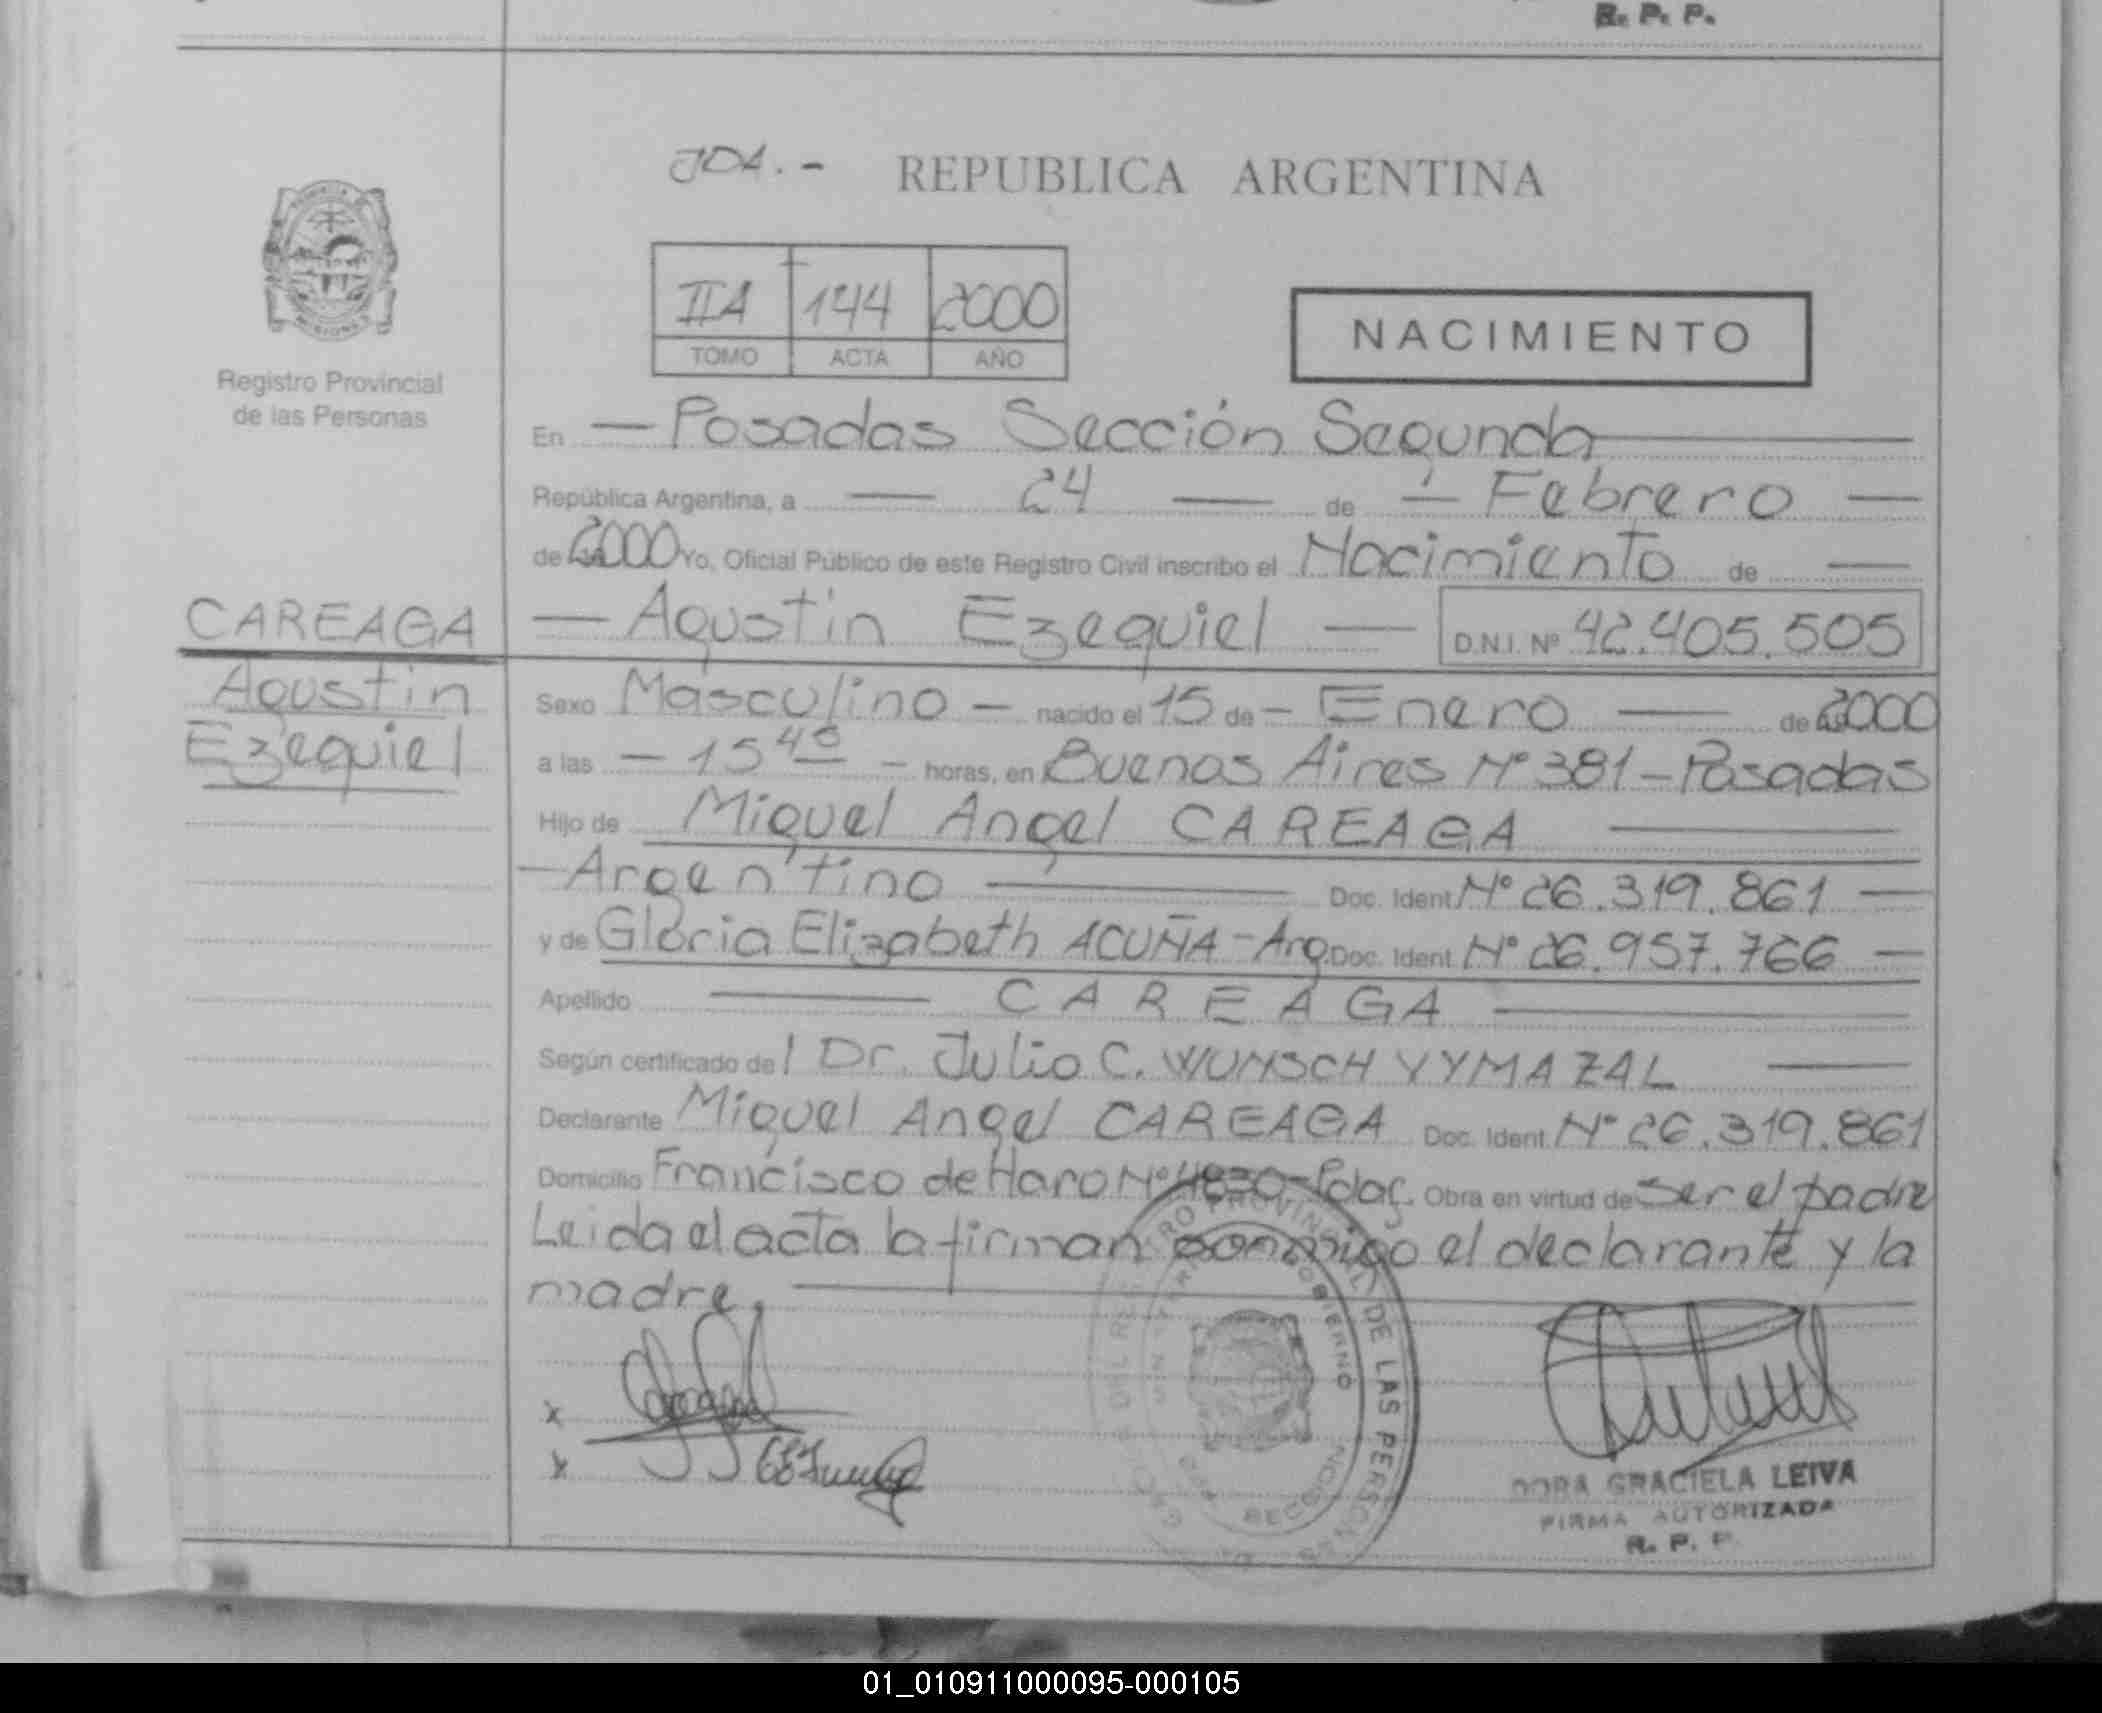 R. P. P.
JDA.- REPUBLICA ARGENTINA
IIA 144 2000
TOMO ACTA AÑO
NACIMIENTO
Registro Provincial
de las Personas
En — Posadas Sección Segunda
República Argentina, a — 24 — de — Febrero —
de 2000 Yo, Oficial Público de este Registro Civil inscribo el Nacimiento de —
CAREAGA
Agustin
Ezequiel
— Agustin Ezequiel — D.N.I. Nº 42.405.505
Sexo Masculino — nacido el 15 de — Enero — de 2000
a las — 15 45 — horas, en Buenos Aires Nº 381 - Posadas
Hijo de Miguel Angel CAREAGA
— Argentino — Doc. Ident Nº 26.319.861 —
y de Gloria Elizabeth ACUÑA - Arg. Doc. Ident Nº 26.957.766 —
Apellido — CAREAGA —
Según certificado del Dr. Julio C. WUNSCH VYMAZAL —
Declarante Miguel Angel CAREAGA Doc. Ident. Nº 26.319.861
Domicilio Francisco de Haro Nº 4830 - Pdas. Obra en virtud de ser el padre
Leida el acta la firman conmigo el declarante y la
madre.
x
x
PROVINCIAL DE LAS PERSONAS
GOBIERNO
SECCION
DORA GRACIELA LEIVA
FIRMA AUTORIZADA
R. P. P.
01_010911000095-000105